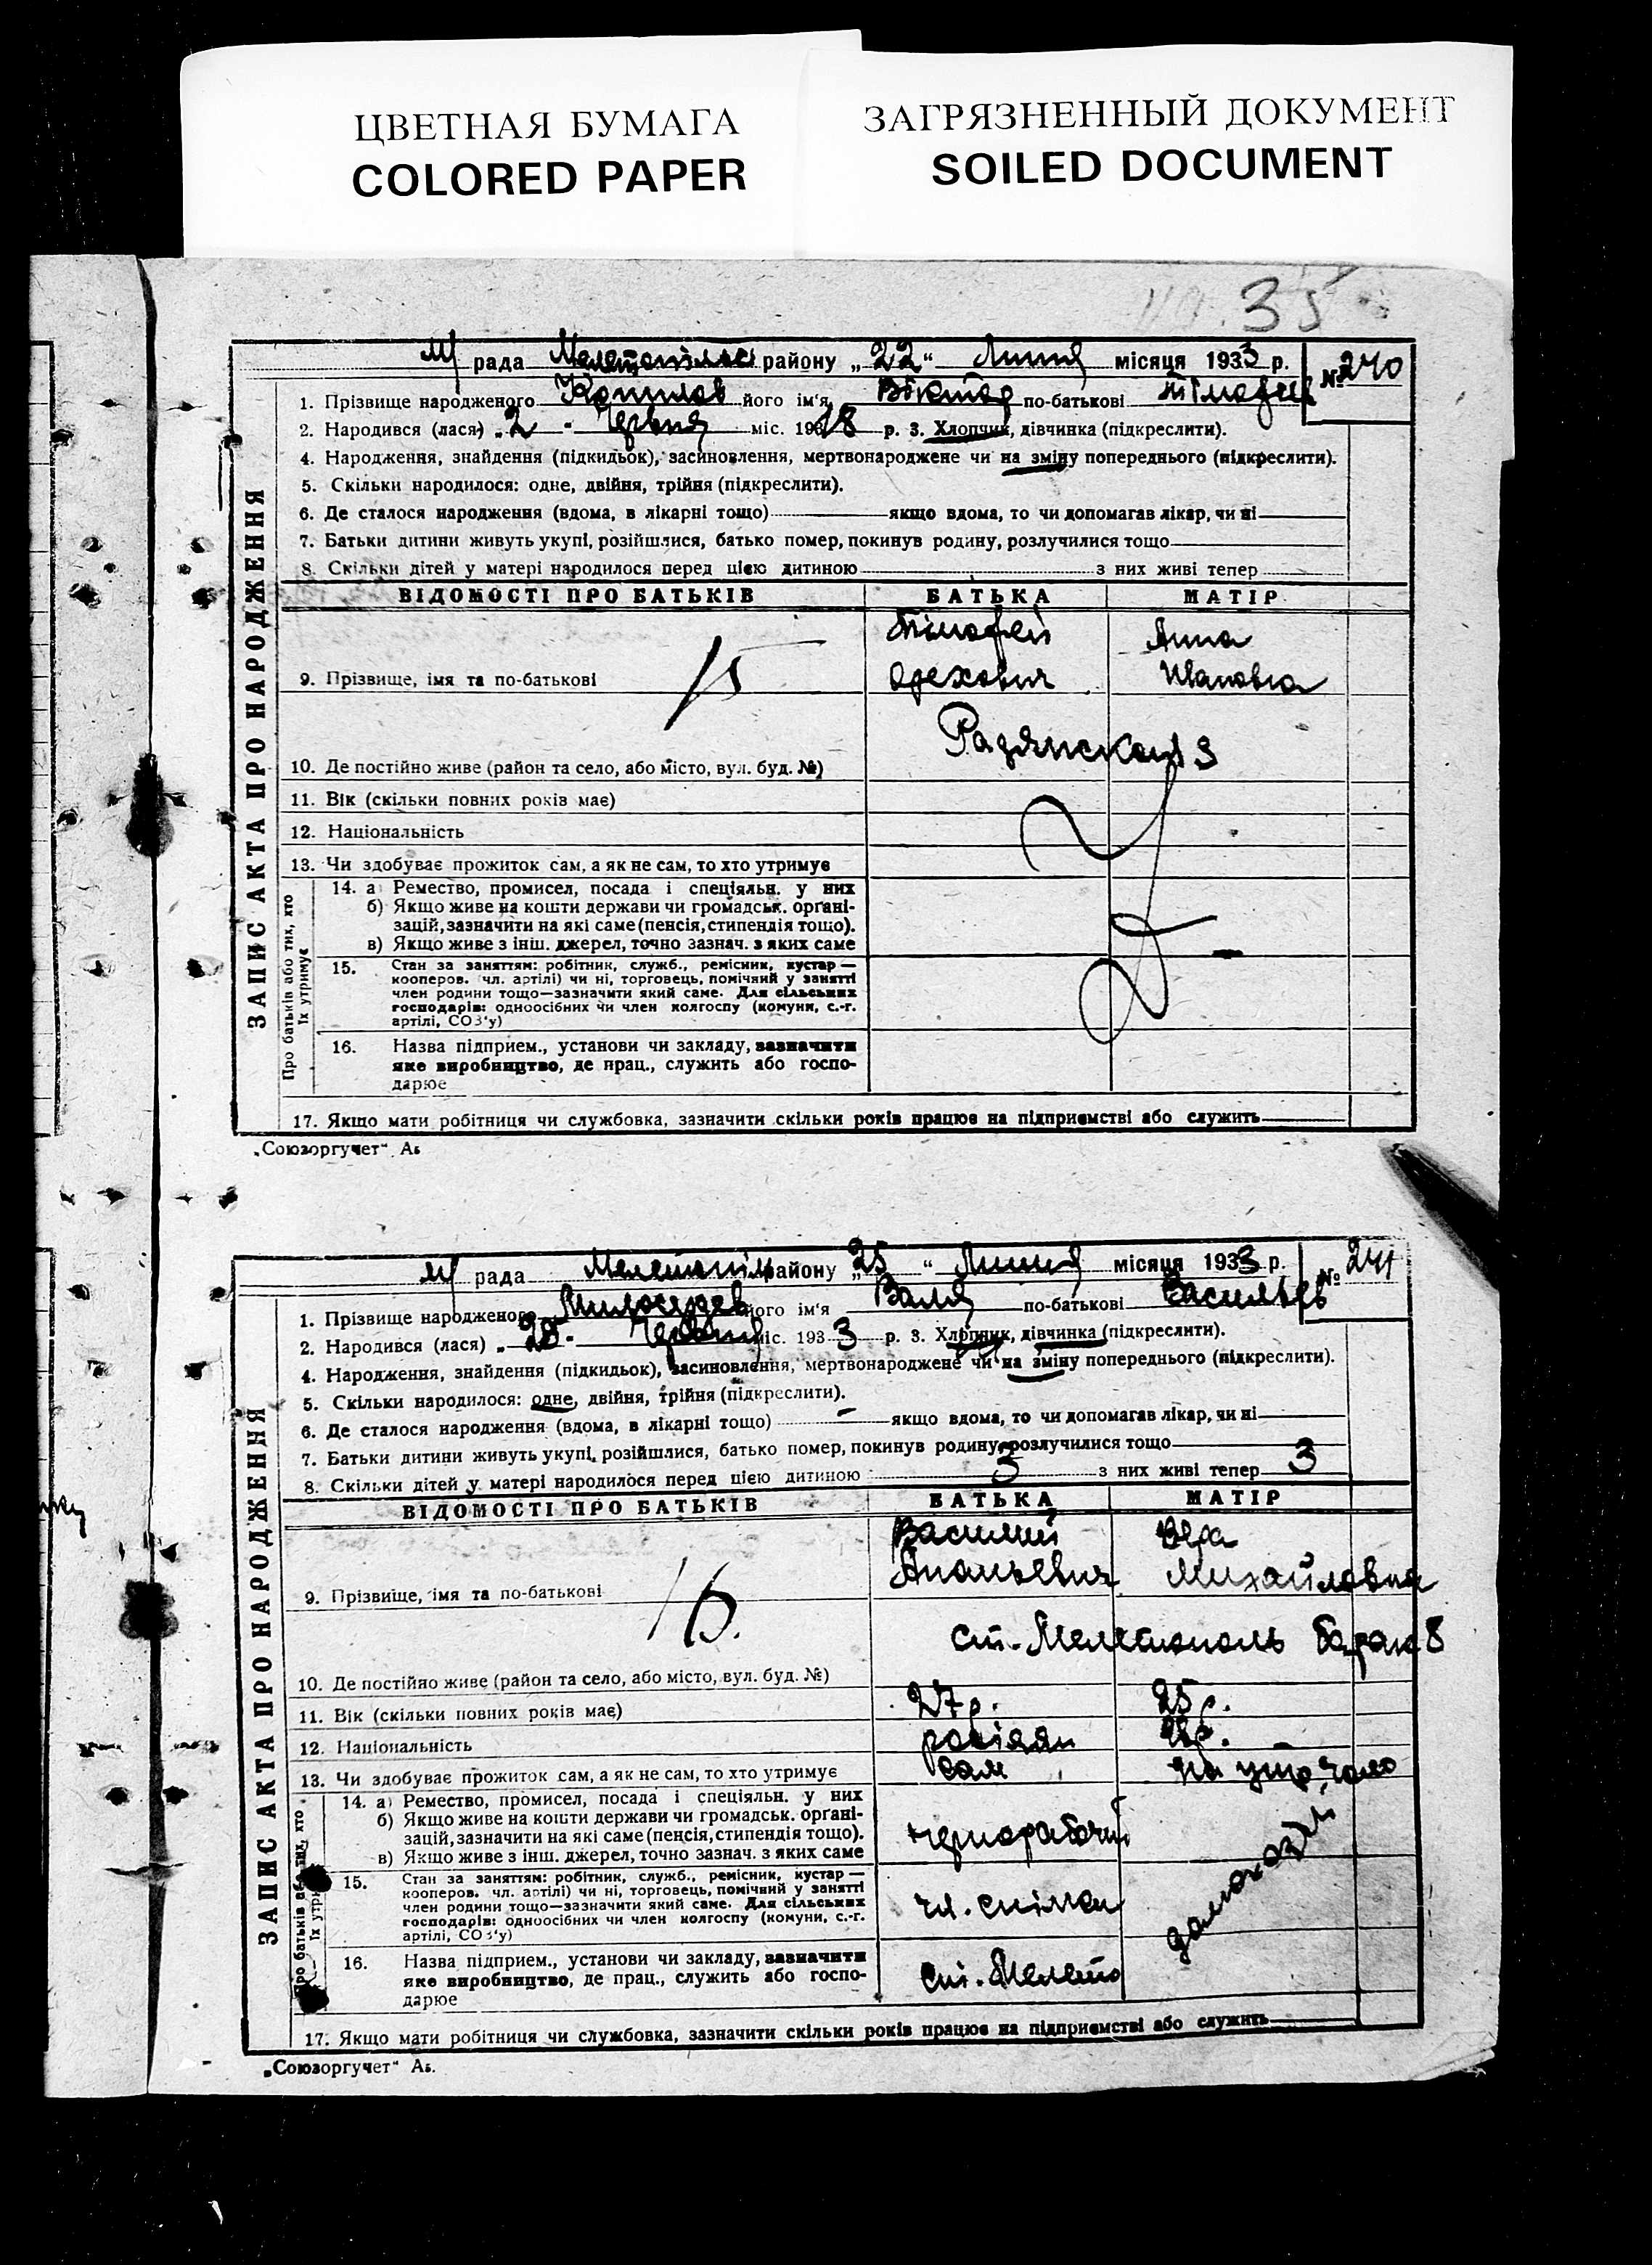 ЦВЕТНАЯ БУМАГА
COLORED PAPER
ЗАГРЯЗНЕННЫЙ ДОКУМЕНТ
SOILED DOCUMENT
35
ЗАПИС АКТА ПРО НАРОДЖЕННЯ
М рада району „22“ Липня місяця 1933 р. № 240
1. Прізвище народженого його ім'я Віктор по-батькові
2. Народився (лася) „2 - Червня міс. 1928 р. 3. Хлопчик, дівчинка (підкреслити).
4. Народження, знайдення (підкидьок), засиновлення, мертвонароджене чи на зміну попереднього (підкреслити).
5. Скільки народилося: одне, двійня, трійня (підкреслити).
6. Де сталося народження (вдома, в лікарні тощо) якщо вдома, то чи допомагав лікар, чи ні
7. Батьки дитини живуть укупі, розійшлися, батько помер, покинув родину, розлучилися тощо
8. Скільки дітей у матері народилося перед цією дитиною з них живі тепер
ВІДОМОСТІ ПРО БАТЬКІВ БАТЬКА МАТІР
Тімофей Анна
9. Прізвище, імя та по-батькові 15 Ивановна
10. Де постійно живе (район та село, або місто, вул. буд. №)
11. Вік (скільки повних років має)
12. Національність
13. Чи здобуває прожиток сам, а як не сам, то хто утримує
Про батьків або тих, хто їх утримує
14. а) Ремество, промисел, посада і спеціяльн. у них
б) Якщо живе на кошти держави чи громадськ. органі-
зацій, зазначити на які саме (пенсія, стипендія тощо).
в) Якщо живе з інш. джерел, точно зазнач. з яких саме
15. Стан за заняттям: робітник, служб., ремісник, кустар—
кооперов. чл. артілі) чи ні, торговець, помічний у занятті
член родини тощо—зазначити який саме. Для сільських
господарів: одноосібних чи член колгоспу (комуни, с.-г.
артілі, СОЗ'у)
16. Назва підприєм., установи чи закладу, зазначити
яке виробництво, де прац., служить або госпо-
дарює
17. Якщо мати робітниця чи службовка, зазначити скільки років працює на підприємстві або служить
„Союзоргучет“ Аь
ЗАПИС АКТА ПРО НАРОДЖЕННЯ
М рада району „25“ Липня місяця 1933 р. № 241
1. Прізвище народженого його ім'я Валя по-батькові Васильев
2. Народився (лася) „28 - Червня міс. 1933 р. 3. Хлопчик, дівчинка (підкреслити).
4. Народження, знайдення (підкидьок), засиновлення, мертвонароджене чи на зміну попереднього (підкреслити).
5. Скільки народилося: одне, двійня, трійня (підкреслити).
6. Де сталося народження (вдома, в лікарні тощо) — якщо вдома, то чи допомагав лікар, чи ні
7. Батьки дитини живуть укупі, розійшлися, батько помер, покинув родину, розлучилися тощо
8. Скільки дітей у матері народилося перед цією дитиною 3 з них живі тепер 3
ВІДОМОСТІ ПРО БАТЬКІВ БАТЬКА МАТІР
Василий Вера
9. Прізвище, імя та по-батькові 16. Ананьевич Михайловна
ст. Мелетополь барак 8
10. Де постійно живе (район та село, або місто, вул. буд. №)
11. Вік (скільки повних років має) 27 р. 25 р.
12. Національність росіян
13. Чи здобуває прожиток сам, а як не сам, то хто утримує сам
Про батьків або тих, хто їх утрим
14. а) Ремество, промисел, посада і спеціяльн. у них
б) Якщо живе на кошти держави чи громадськ. органі-
зацій, зазначити на які саме (пенсія, стипендія тощо). чернорабочий
в) Якщо живе з інш. джерел, точно зазнач. з яких саме
15. Стан за заняттям: робітник, служб., ремісник, кустар—
кооперов. чл. артілі) чи ні, торговець, помічний у занятті
член родини тощо—зазначити який саме. Для сільських
господарів: одноосібних чи член колгоспу (комуни, с.-г.
артілі, СОЗ'у)
16. Назва підприєм., установи чи закладу, зазначити
яке виробництво, де прац., служить або госпо- ст. Мелето
дарює
17. Якщо мати робітниця чи службовка, зазначити скільки років працює на підприємстві або служить
„Союзоргучет“ Аь.